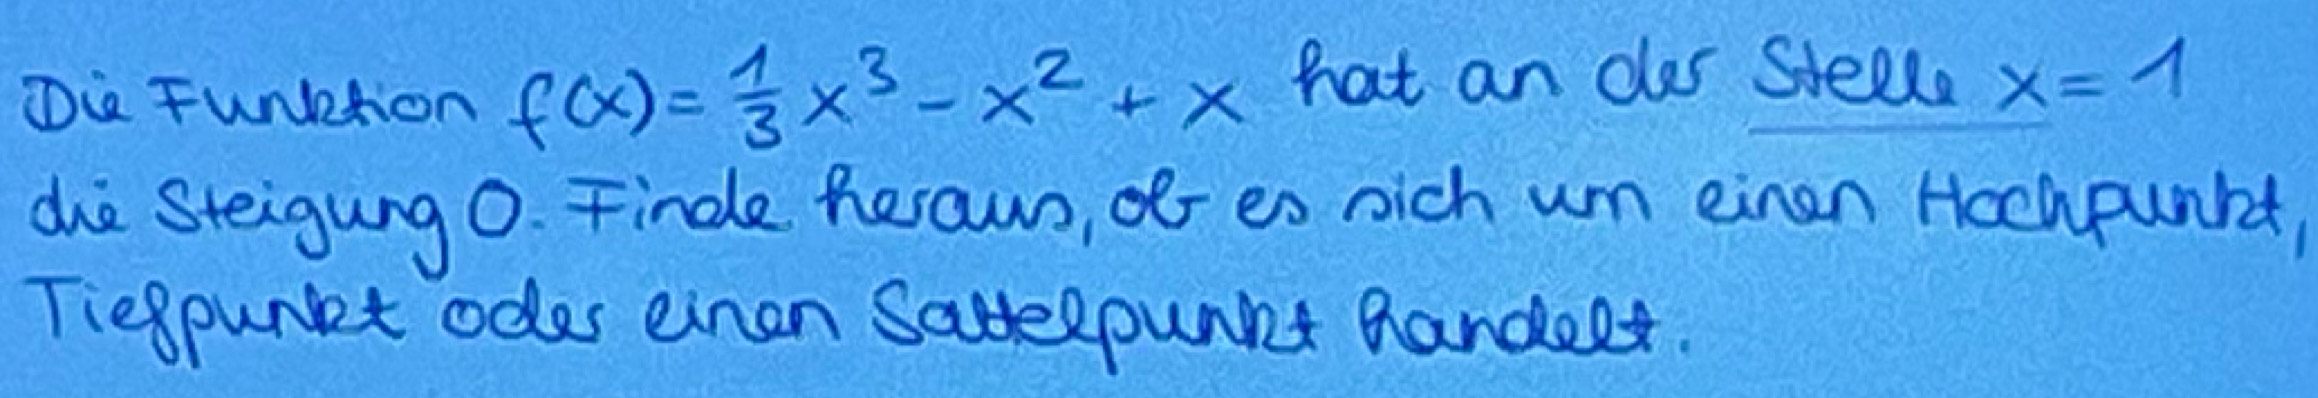 Die Funktion f(x) = 1/3 x³ - x² + x hat an der Stelle x = 1
die Steigung 0. Finde heraus, ob es sich um einen Hochpunkt,
Tiefpunkt oder einen Sattelpunkt handelt.